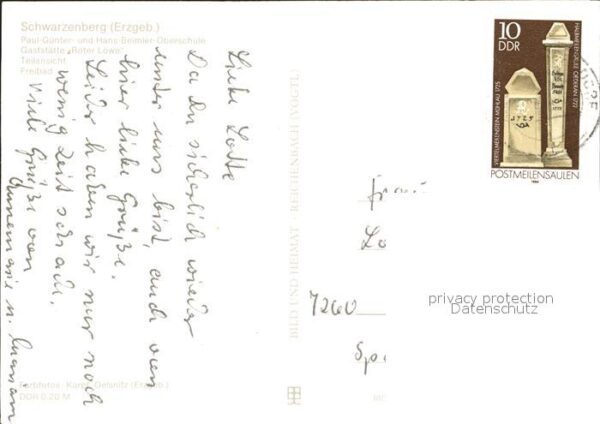 Schwarzenberg (Erzgeb.)
Paul-Günter- und Hans-Beimler-Oberschule
Gaststätte „Roter Löwe"
Teilansicht
Freibad
Liebe Lotte
Da du sicherlich wieder
unter uns bist, auch von
hier liebe Grüße.
Leider haben wir nur noch
wenig Zeit
Viele Grüße von
Annemarie u.
Farbfotos: Oelsnitz (Erzgeb.)
DDR 0,20 M
BILD UND HEIMAT REICHENBACH (VOGTL)
10
DDR
VIERTELMEILENSTEIN MÜHLAU 1725
HALBMEILENSÄULE ORTRAND 1722
POSTMEILENSÄULEN
1984
Frau
Lo
7260
privacy protection
Datenschutz